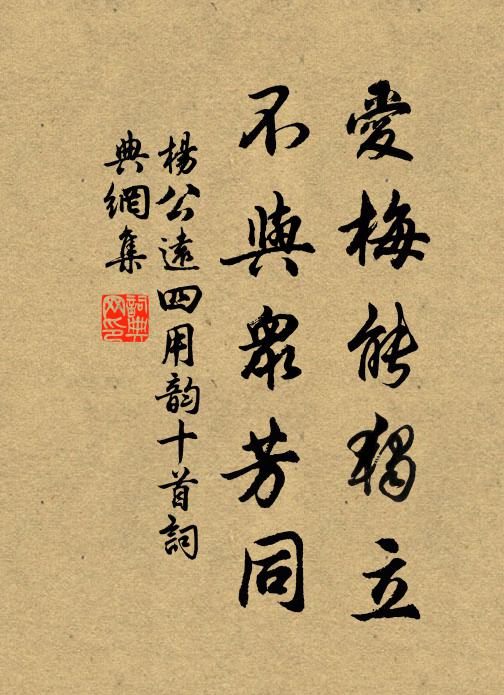 愛梅能獨立
不與衆芳同
楊公遠四用韵十首詞
典網集
詞典
网印